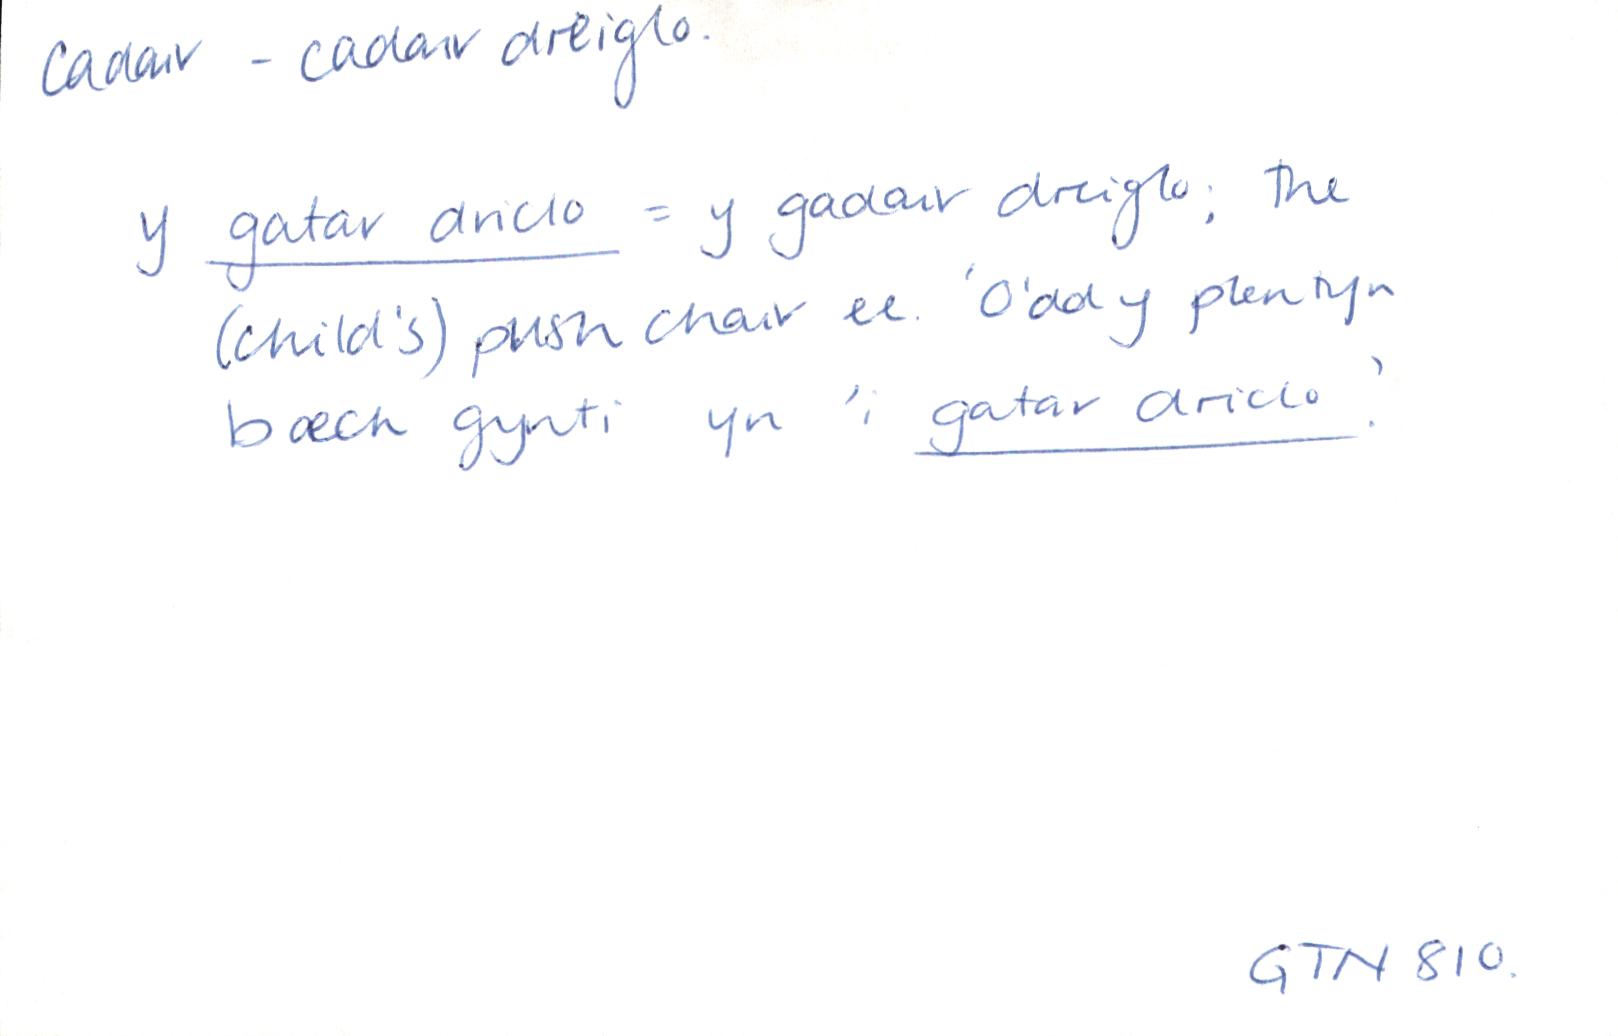 Cadair - cadair dreiglo.
y gatar driclo = y gadair dreiglo; the
(child's) push chair ee. 'O'dd y plentyn
bæch gynti yn 'i gatar driclo'.
GTN 810.